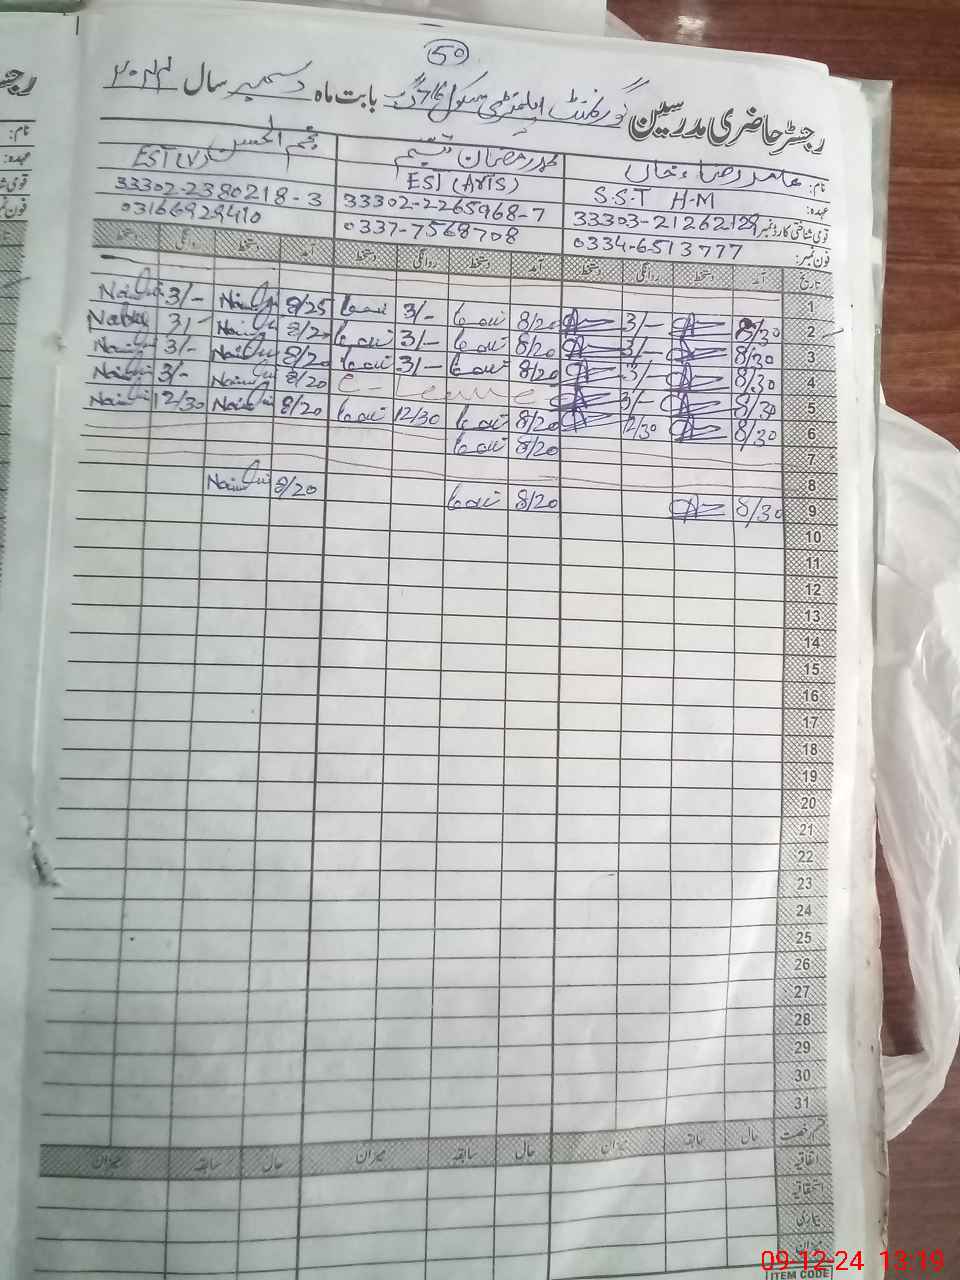 50
رجسٹر حاضری مدرسین گورنمنٹ ایلیمنٹری سکول 716 گ ب بابت ماہ دسمبر سال ۲۰۲۴
نام: عامر رضاء خاں محمد رمضان تبسم نجم الحسن
عہدہ: S.S.T H-M EST (ARTS) EST(V)
قومی شناختی کارڈ نمبر 33303-2126212 33302-2265968-7 33302-2380218-3
فون نمبر: 0334-6513777 0337-7568708 03166929410
تاریخ آمد دستخط روانگی دستخط آمد دستخط روانگی دستخط آمد دستخط روانگی دستخط
1
2 8/30 3/- 8/20 3/- 8/25 3/-
3 8/30 3/- 8/20 3/- 8/20 3/-
4 8/30 3/- 8/20 3/- 8/20 3/-
5 8/30 3/- C-Leave 8/20 3/-
6 8/30 12/30 8/20 12/30 8/20 12/30
7 8/20
8
9 8/30 8/20 8/20
10
11
12
13
14
15
16
17
18
19
20
21
22
23
24
25
26
27
28
29
30
31
قسم رخصت حال سابقہ میزان حال سابقہ میزان حال سابقہ میزان
اتفاقیہ
استحقاقیہ
بیماری
میزان
ITEM CODE
09-12-24 13:19